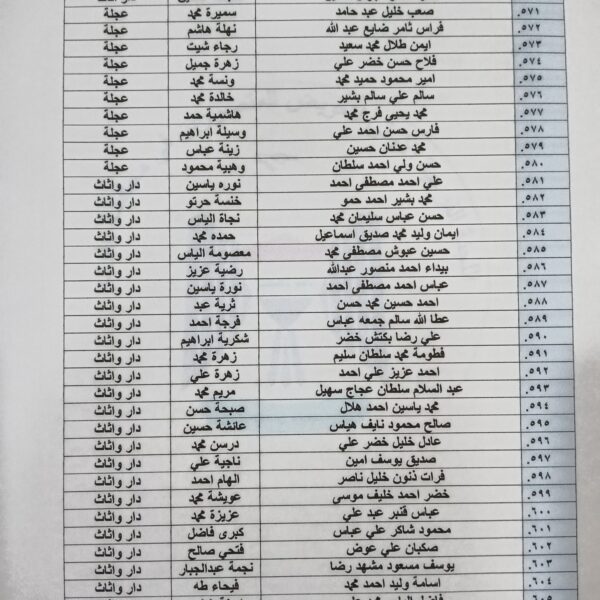 ٥٧١. صعب خليل عبد حامد سميرة محمد عجلة
٥٧٢. فراس ثامر ضايع عبد الله نهلة هاشم عجلة
٥٧٣. ايمن طلال محمد سعيد رجاء شيت عجلة
٥٧٤. فلاح حسن خضر علي زهرة جميل عجلة
٥٧٥. امير محمود حميد محمد ونسة محمد عجلة
٥٧٦. سالم علي سالم بشير خالدة محمد عجلة
٥٧٧. محمد يحيى فرج محمد هاشمية حمد عجلة
٥٧٨. فارس حسن احمد علي وسيلة ابراهيم عجلة
٥٧٩. محمد عدنان حسين زينة عباس عجلة
٥٨٠. حسن ولي احمد سلطان وهبية محمود عجلة
٥٨١. علي احمد مصطفى احمد نوره ياسين دار واثاث
٥٨٢. محمد بشير احمد حمو خنسة حرتو دار واثاث
٥٨٣. حسن عباس سليمان محمد نجاة الياس دار واثاث
٥٨٤. ايمان وليد محمد صديق اسماعيل حمده محمد دار واثاث
٥٨٥. حسين عبوش مصطفى محمد معصومة الياس دار واثاث
٥٨٦. بيداء احمد منصور عبدالله رضية عزيز دار واثاث
٥٨٧. عباس احمد مصطفى احمد نورة ياسين دار واثاث
٥٨٨. احمد حسين محمد حسن ثرية عبد دار واثاث
٥٨٩. عطا الله سالم جمعه عباس فرجة احمد دار واثاث
٥٩٠. علي رضا بكتش خضر شكرية ابراهيم دار واثاث
٥٩١. فطومة محمد سلطان سليم زهرة محمد دار واثاث
٥٩٢. احمد عزيز علي احمد زهرة علي دار واثاث
٥٩٣. عبد السلام سلطان عجاج سهيل مريم محمد دار واثاث
٥٩٤. محمد ياسين احمد هلال صبحة حسن دار واثاث
٥٩٥. صالح محمود نايف هياس عائشة حسين دار واثاث
٥٩٦. عادل خليل خضر علي درسن محمد دار واثاث
٥٩٧. صديق يوسف امين ناجية علي دار واثاث
٥٩٨. فرات ذنون خليل ناصر الهام احمد دار واثاث
٥٩٩. خضر احمد خليف موسى عويشة محمد دار واثاث
٦٠٠. عباس قنبر عبد علي عزيزة محمد دار واثاث
٦٠١. محمود شاكر علي عباس كبرى فاضل دار واثاث
٦٠٢. صكبان علي عوض فتحي صالح دار واثاث
٦٠٣. يوسف مسعود مشهد رضا نجمة عبدالجبار دار واثاث
٦٠٤. اسامة وليد احمد محمد فيحاء طه دار واثاث
٦٠٥.